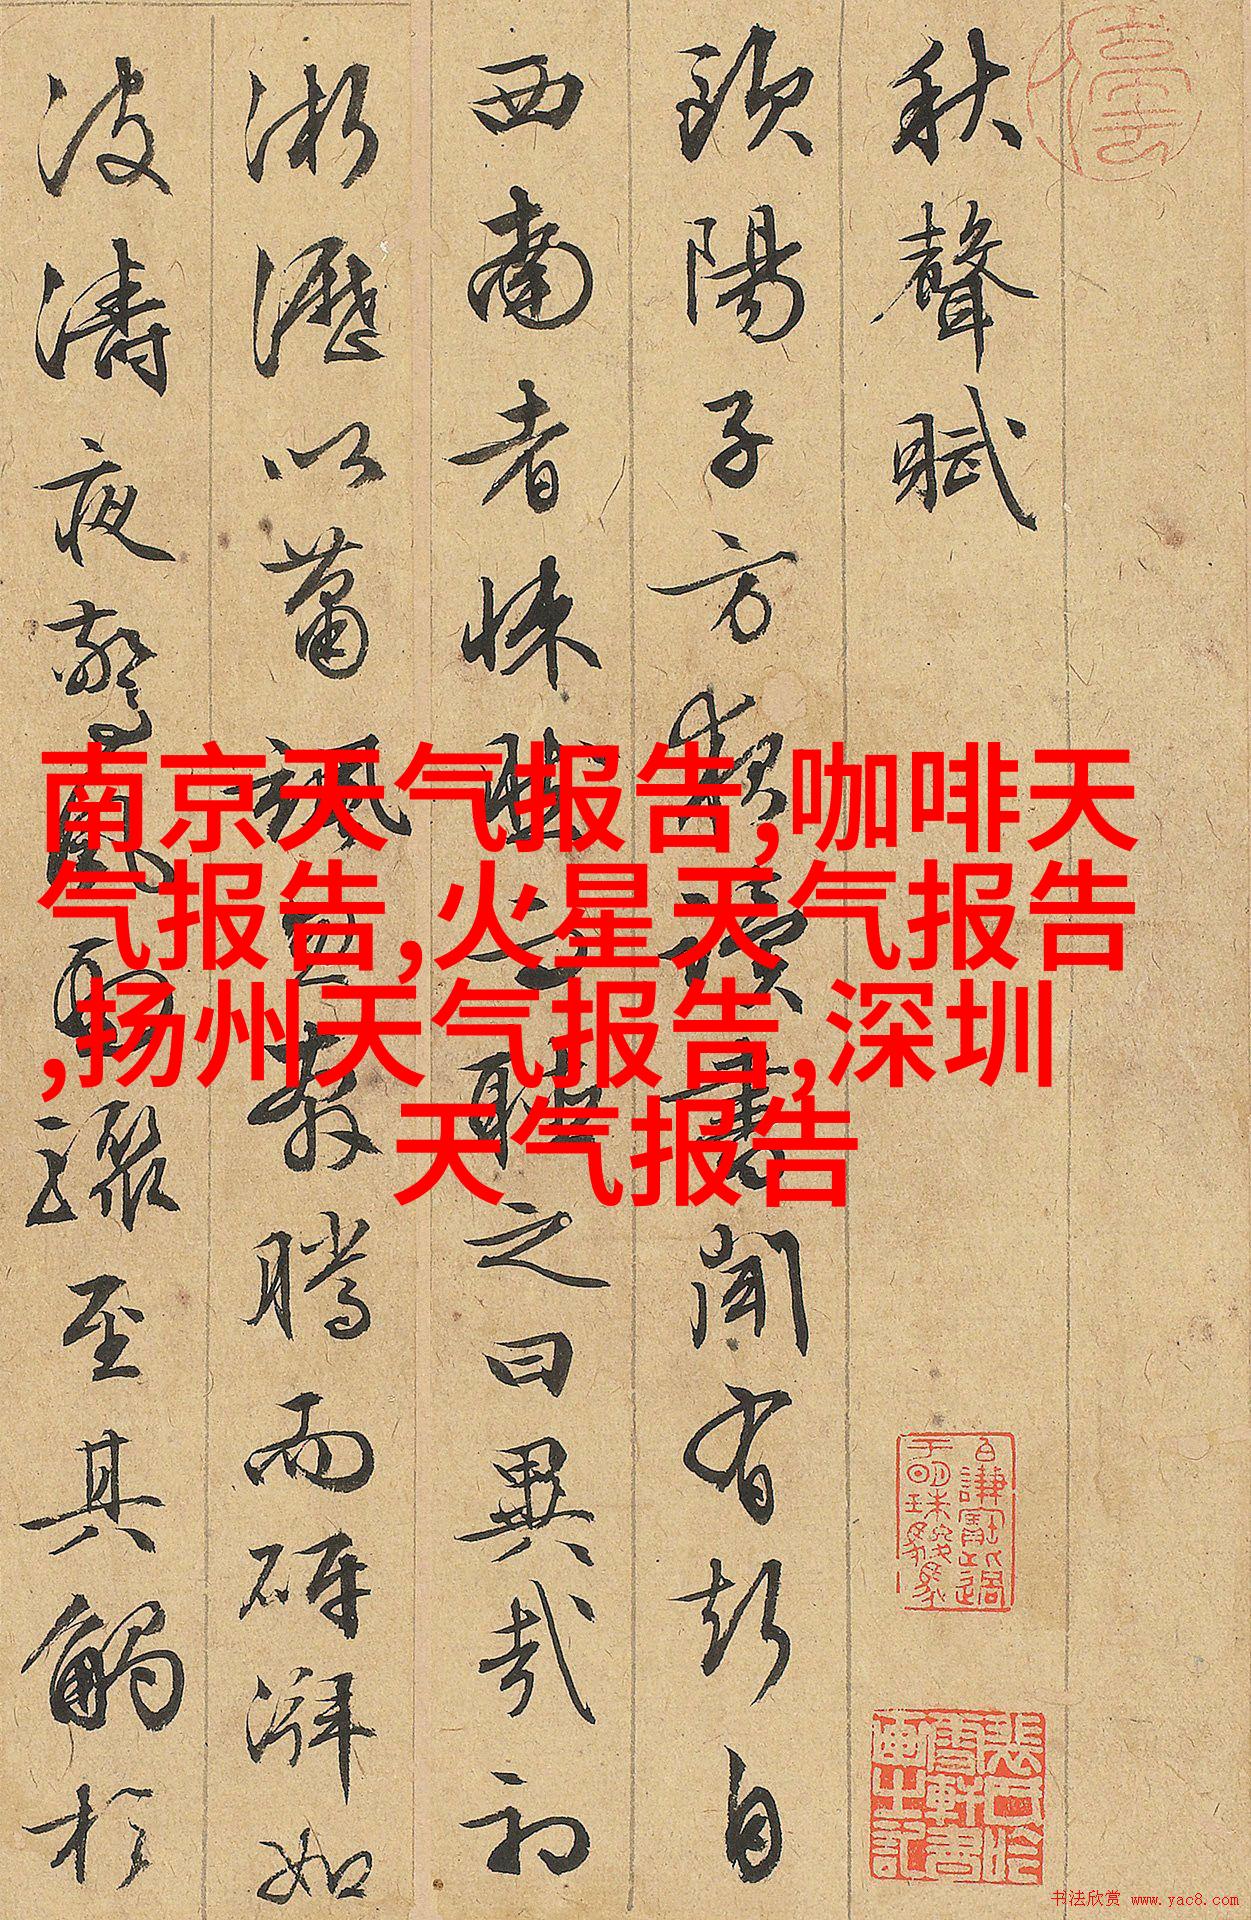 秋聲賦
歐陽子方夜讀書聞有聲自
西南者悚然而聽之曰異哉初
淅瀝以蕭颯忽奔騰而砰湃如
波濤夜驚風雨驟至其觸於
南京天气报告,咖啡天
气报告,火星天气报告
,扬州天气报告,深圳
天气报告
书法欣赏 www.yac8.com